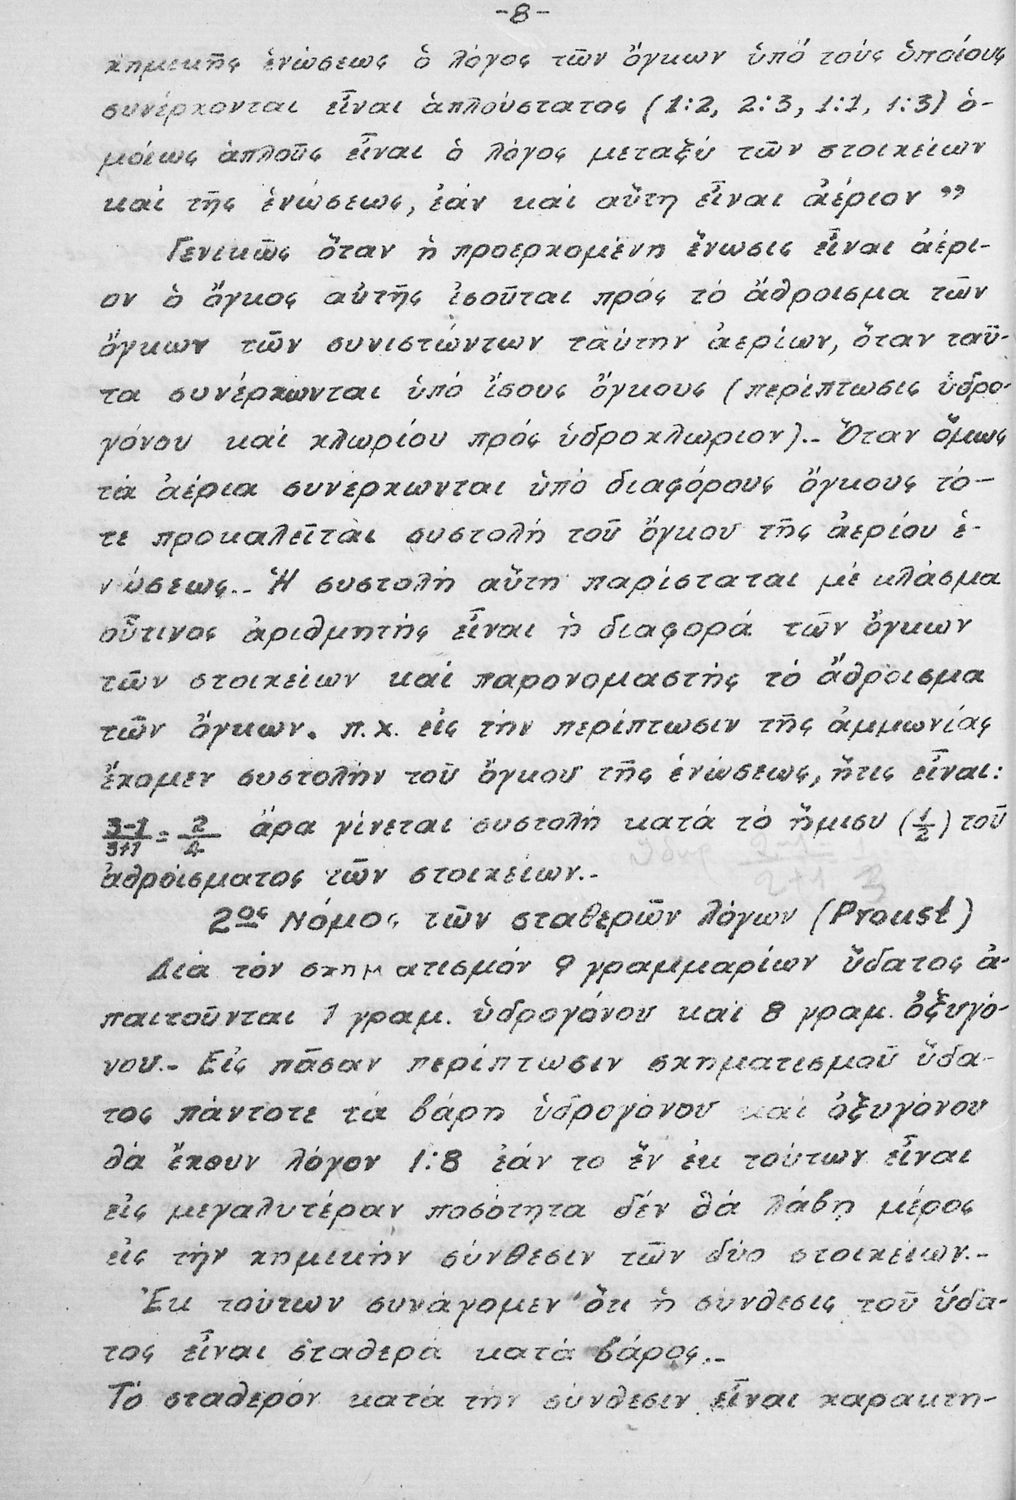 -8-
χημικῆς ἑνώσεως ὁ λόγος τῶν ὄγκων ὑπό τούς ὁποίους
συνέρχονται εἶναι ἁπλούστατος (1:2, 2:3, 1:1, 1:3) ὁ-
μοίως ἁπλοῦς εἶναι ὁ λόγος μεταξύ τῶν στοιχείων
καί τῆς ἑνώσεως, ἐάν καί αὕτη εἶναι ἀέριον "
Γενικῶς ὅταν ἡ προερχομένη ἕνωσις εἶναι ἀέρι-
ον ὁ ὄγκος αὐτῆς ἰσοῦται πρός τό ἄθροισμα τῶν
ὄγκων τῶν συνιστώντων ταύτην ἀερίων, ὅταν ταῦ-
τα συνέρχωνται ὑπό ἴσους ὄγκους (περίπτωσις ὑδρο-
γόνου καί χλωρίου πρός ὑδροχλωριον).- Ὅταν ὅμως
τά ἀέρια συνέρχωνται ὑπό διαφόρους ὄγκους τό-
τε προκαλεῖται συστολή τοῦ ὄγκου τῆς ἀερίου ἑ-
νώσεως.- Ἡ συστολή αὕτη παρίσταται μέ κλάσμα
οὗτινος ἀριθμητής εἶναι ἡ διαφορά τῶν ὄγκων
τῶν στοιχείων καί παρονομαστής τό ἄθροισμα
τῶν ὄγκων. π.χ. εἰς τήν περίπτωσιν τῆς ἀμμωνίας
ἔχομεν συστολήν τοῦ ὄγκου τῆς ἑνώσεως, ἥτις εἶναι:
3-1/3+1 = 2/4 ἄρα γίνεται συστολή κατά τό ἥμισυ (1/2) τοῦ
ἀθροίσματος τῶν στοιχείων.-
2ος Νόμος τῶν σταθερῶν λόγων (Proust)
Διά τόν σχηματισμόν 9 γραμμαρίων ὕδατος ἀ-
παιτοῦνται 1 γραμ. ὑδρογόνου καί 8 γραμ. ὀξυγό-
νου.- Εἰς πᾶσαν περίπτωσιν σχηματισμοῦ ὕδα-
τος πάντοτε τά βάρη ὑδρογόνου καί ὀξυγόνου
θά ἔχουν λόγον 1:8 ἐάν το ἕν ἐκ τούτων εἶναι
εἰς μεγαλυτέραν ποσότητα δέν θά λάβη μέρος
εἰς τήν χημικήν σύνθεσιν τῶν δύο στοιχείων.-
Ἐκ τούτων συνάγομεν ὅτι ἡ σύνθεσις τοῦ ὕδα-
τος εἶναι σταθερά κατά βάρος.-
Τό σταθερόν κατά τήν σύνθεσιν εἶναι χαρακτη-